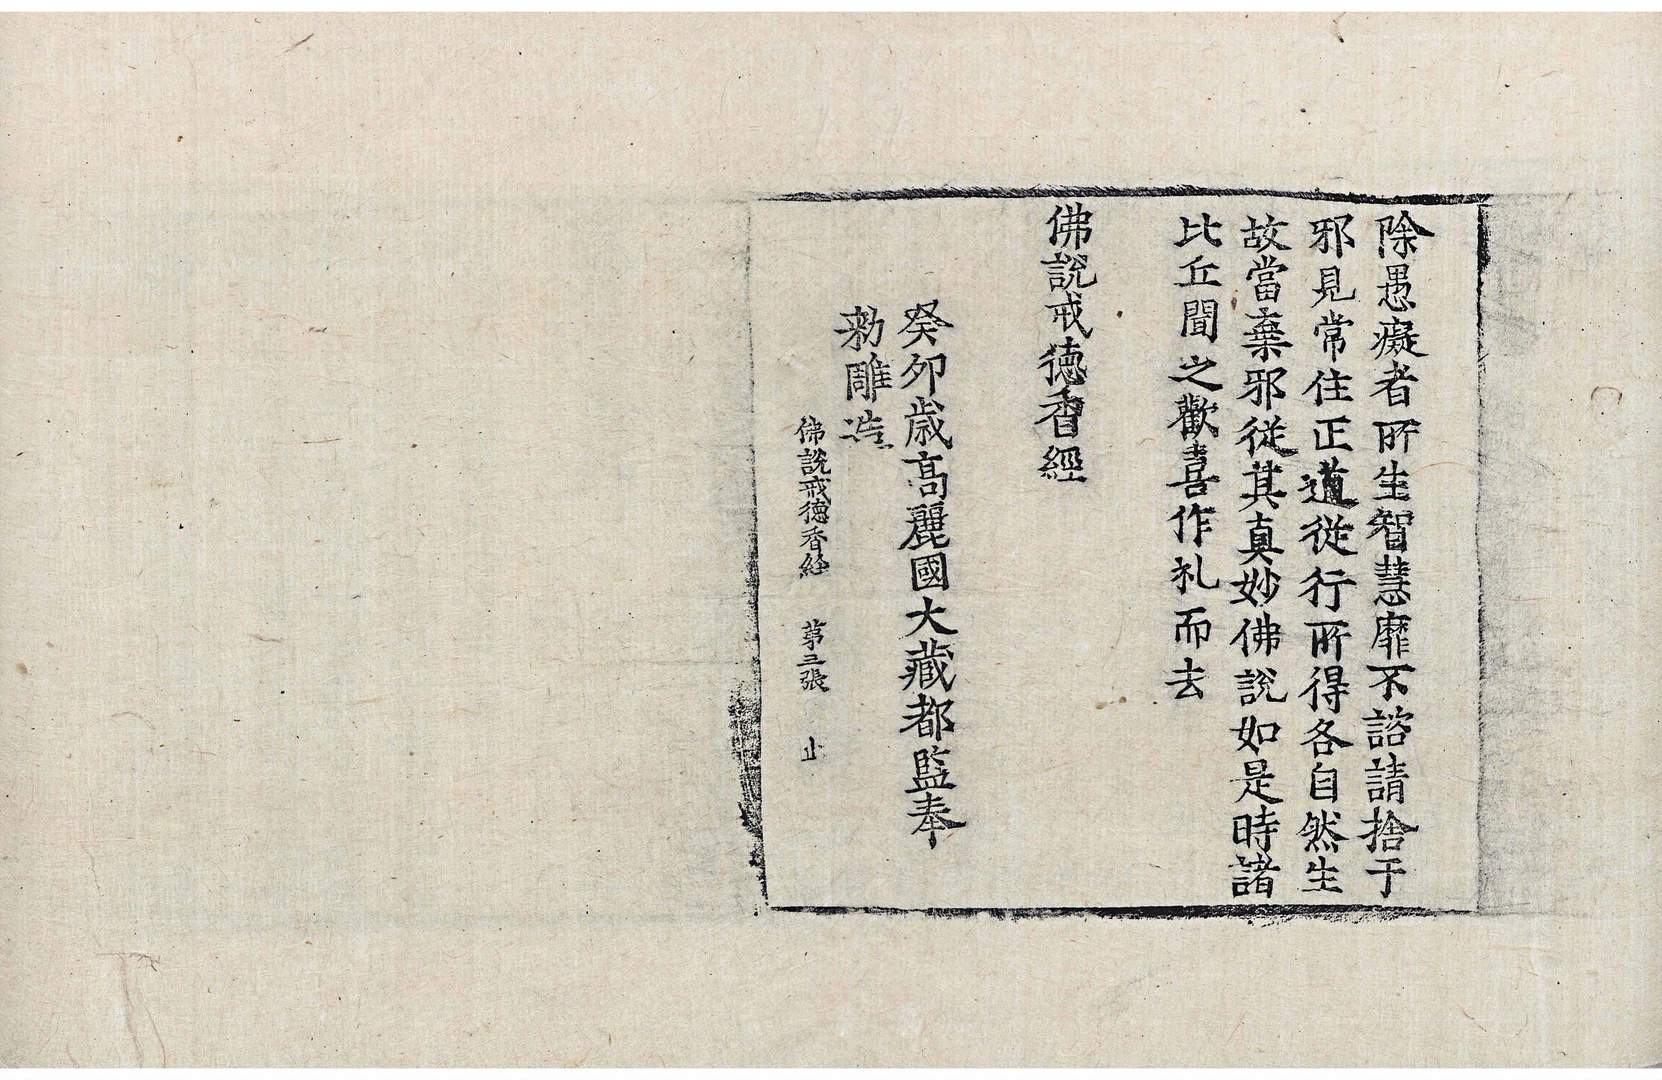 除愚癡者所生智慧靡不諮請捨于
邪見常住正道從行所得各自然生
故當棄邪從其真妙佛說如是時諸
比丘聞之歡喜作礼而去
佛說戒德香經
癸卯歲高麗國大藏都監奉
勑雕造
佛說戒德香経 苐三張 止